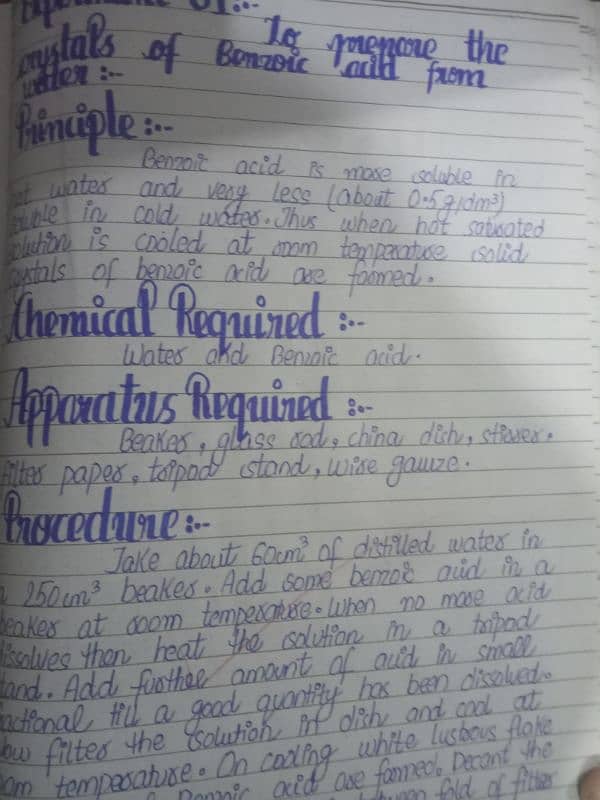 01:--
To prepare the
crystals of Benzoic acid from
water :--
Principle :--
Benzoic acid is more soluble in
hot water and very less (about 0.5g/dm³)
soluble in cold water. Thus when hot saturated
solution is cooled at room temperature solid
crystals of benzoic acid are formed.
Chemical Required :--
Water and Benzoic acid.
Apparatus Required :--
Beaker, glass rod, china dish, stirrer.
filter paper, tripod stand, wire gauze.
Procedure :--
Take about 60cm³ of distilled water in
a 250cm³ beaker. Add some benzoic acid in a
beaker at room temperature. When no more acid
dissolves then heat the solution in a tripod
stand. Add further amount of acid in small
fractional till a good quantity has been dissolved.
Now filter the solution in dish and cool at
room temperature. On cooling white lustrous flake
Benzoic acid are formed. Decant the
fold of filter